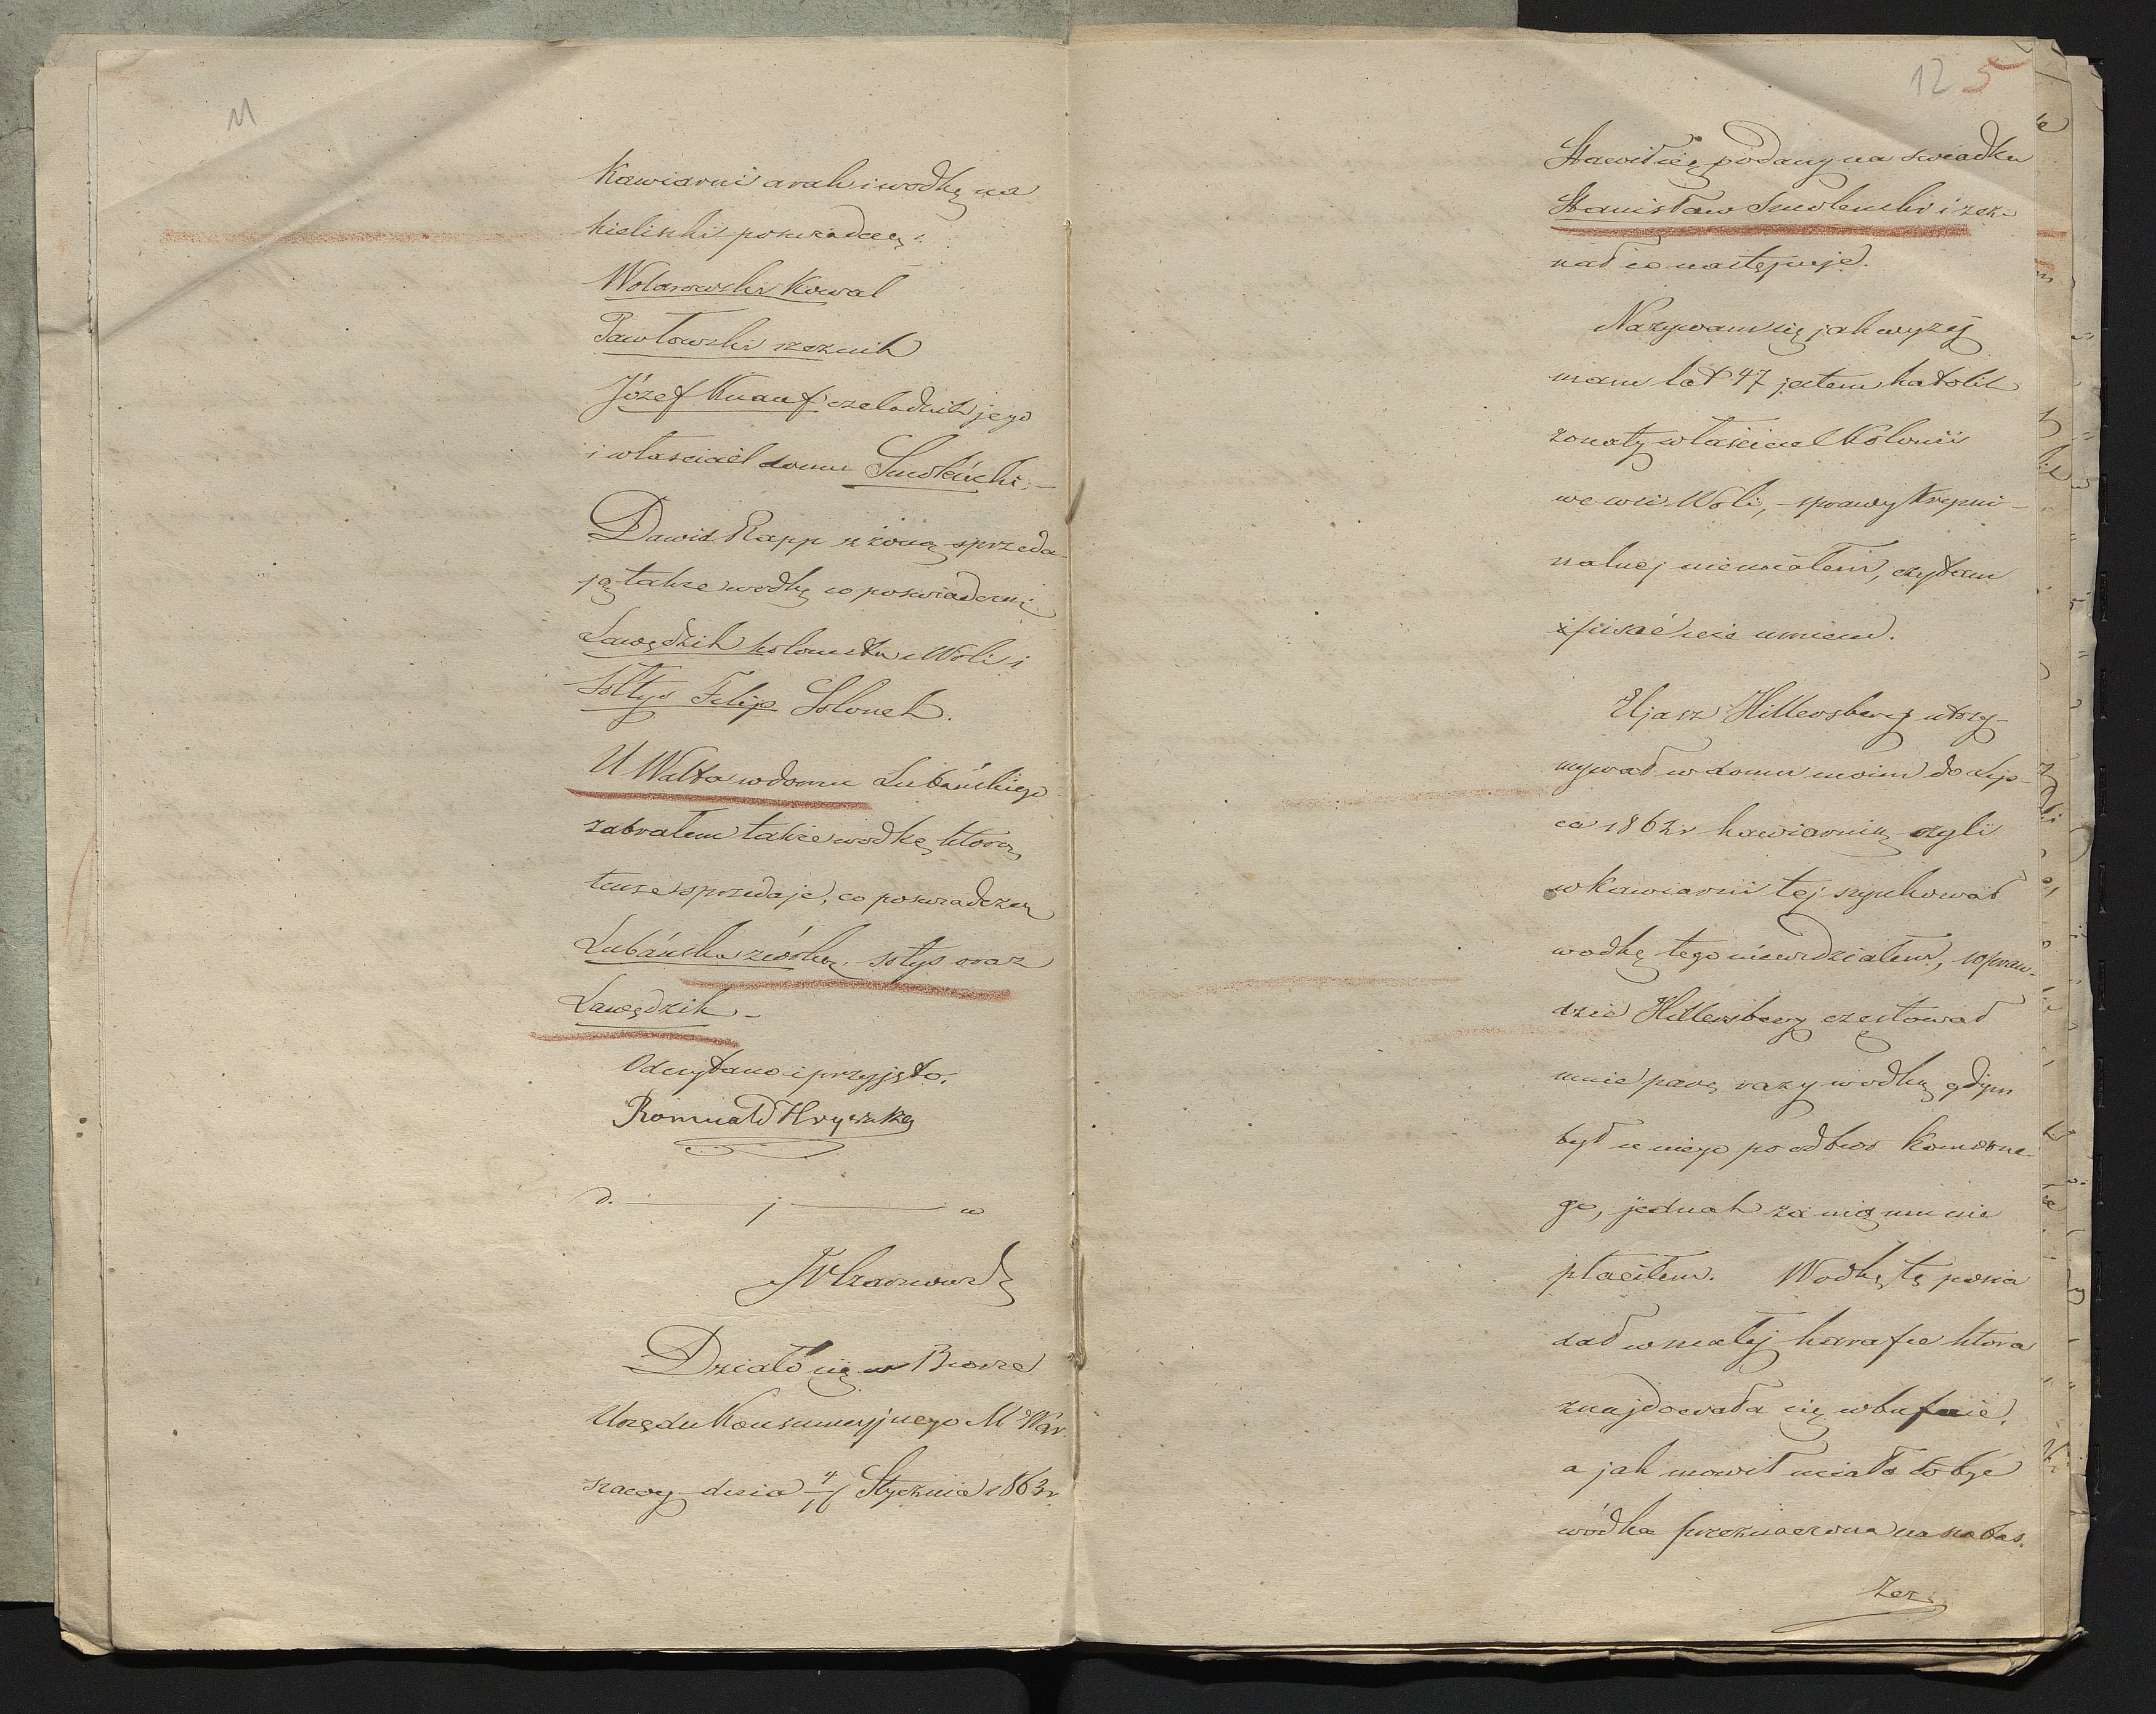 11
Kawiarni arak i wodkę na
kieliszki poswiadczą:
Wolarowski Kowal
Pawłowski rzeznik
Józef Knauf czeladnik jego
i własciciel domu Smoleński. –
Dawid Rapp z żoną sprzeda-
ją takze wodkę co poswiadczni
Lawędzik kolonista z Woli i
Soltys Filip Slonek.
U Walta w domu Lubańskiego
zabrałem także wodkę, ktorą
tenze sprzedaje, co poswiadczą
Lubańska siostra, soltys oraz
Lawędzik –
Odczytano i przyjęto.
Romuald
d. — j — w
Działo się w Biorze
Urzędu Konsumcyjnego M War-
szawy dnia 4/16 Stycznia 1863 r.
12 5
Stawił się podany na swiadka
Stanisław Smolenski i zez-
nał co następuje.
Nazywam się jak wyzej
mam lat 47 jestem katolik
zonaty własciciel Kolonii
we wsi Woli, sprawy Krymi-
nalnej niemiałem, czytam
i pisać nie umiem.
Eljasz Hillersberg utrzy-
mywał w domu moim do Lip-
ca 1862 r kawiarnię czyli
w kawiarni tej szynkował
wodkę tego niewidziałem, wpraw-
dzie Hillersberg częstował
mnie parę razy wodką gdym
był u niego po odbior komorne-
go, jednak za nią mu nie
płaciłem. Wodkę tę posia
dał w małej karafce ktora
znajdowała się w bufecie,
a jak mowił miała to być
wódka przeznaczona na szabas.
Zez